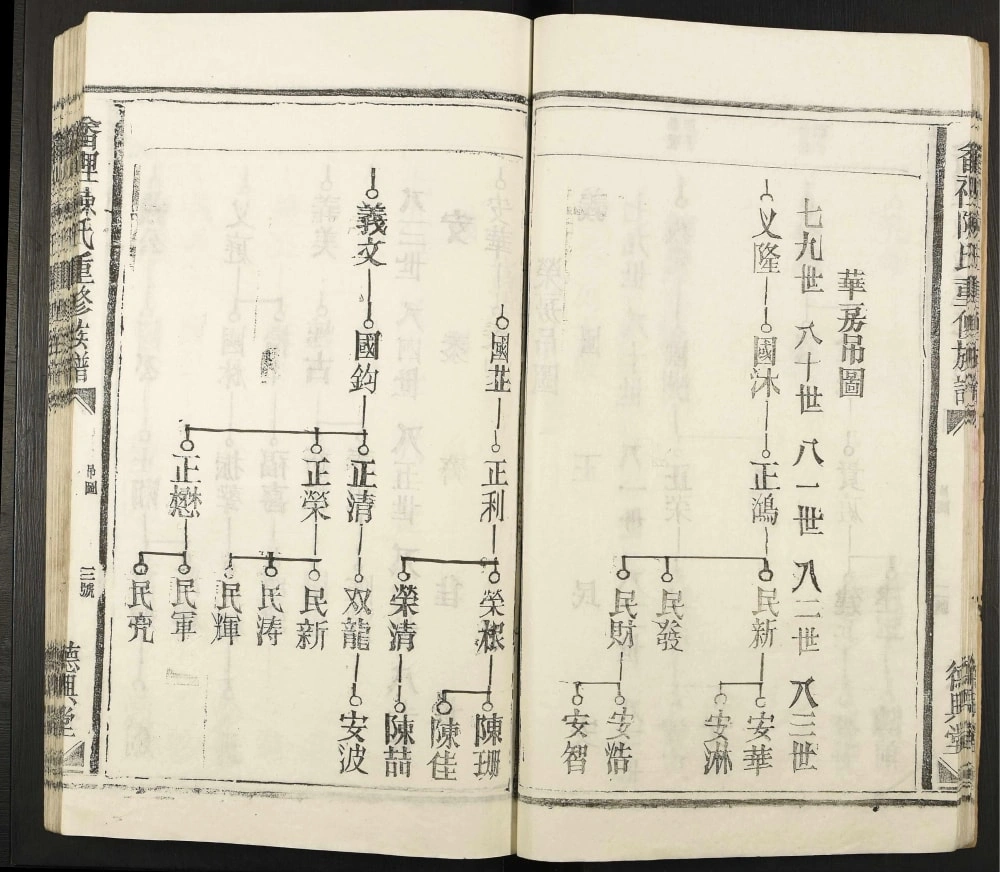 華房吊圖
七九世 八十世 八一世 八二世 八三世
义隆 國沐 正鴻 民新 安華
安淋
民發
民財 安浩
安智
德興堂
國芷 正利 榮根 陳珊
陳佳
榮清 陳喆
義文 國鈞 正清 双龍 安波
正榮 民新
民涛
民輝
正懋 民軍
民亮
陳氏重修族譜
吊圖
三號
德興堂